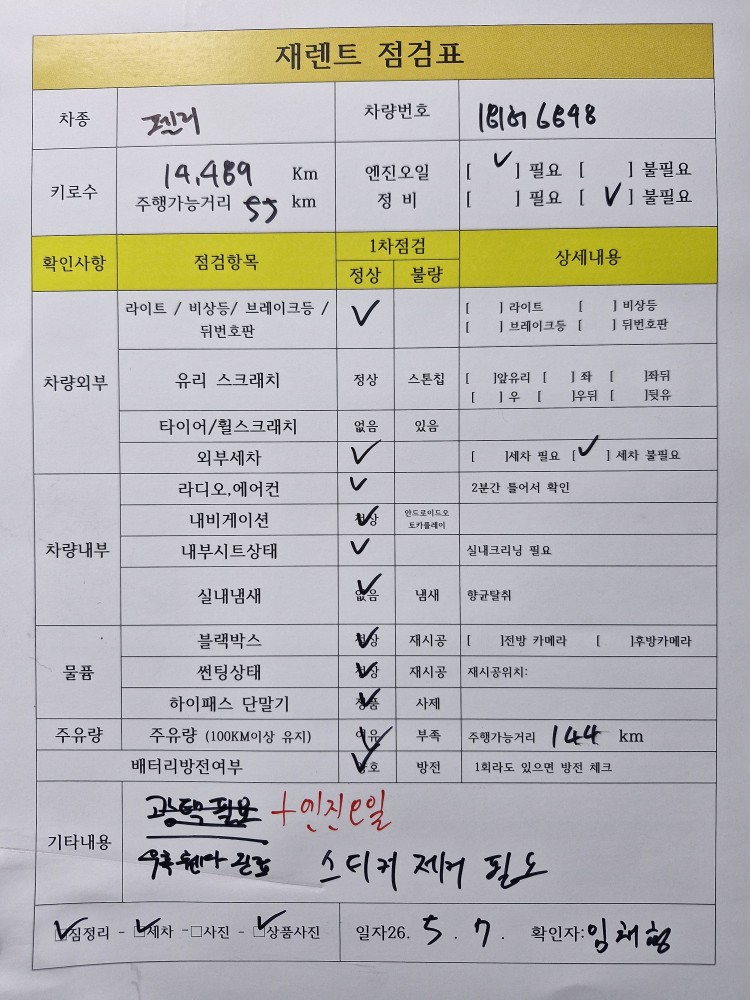 재렌트 점검표
차종 차량번호 6898
키로수 14,489 Km 엔진오일 [ ✓ ] 필요 [ ] 불필요
주행가능거리 55 km 정 비 [ ] 필요 [ ✓ ] 불필요
확인사항 점검항목 1차점검 상세내용
정상 불량
차량외부 라이트 / 비상등/ 브레이크등 / ✓ [ ] 라이트 [ ] 비상등
뒤번호판 [ ] 브레이크등 [ ] 뒤번호판
유리 스크래치 정상 스톤칩 [ ]앞유리 [ ] 좌 [ ]좌뒤
[ ] 우 [ ]우뒤 [ ]뒷유
타이어/휠스크래치 없음 있음
외부세차 ✓ [ ]세차 필요 [ ✓ ] 세차 불필요
차량내부 라디오,에어컨 ✓ 2분간 틀어서 확인
내비게이션 정상 ✓ 안드로이드오
토카플레이
내부시트상태 ✓ 실내크리닝 필요
실내냄새 없음 ✓ 냄새 향균탈취
물품 블랙박스 정상 ✓ 재시공 [ ]전방 카메라 [ ]후방카메라
썬팅상태 정상 ✓ 재시공 재시공위치:
하이패스 단말기 정품 ✓ 사제
주유량 주유량 (100KM이상 유지) ✓ 부족 주행가능거리 144 km
배터리방전여부 양호 ✓ 방전 1회라도 있으면 방전 체크
기타내용 광택 필요 + 엔진오일
스티커 제거 필요
✓ 짐정리 - ✓ 세차 - □사진 - ✓ 상품사진 일자26. 5. 7. 확인자: 임채형